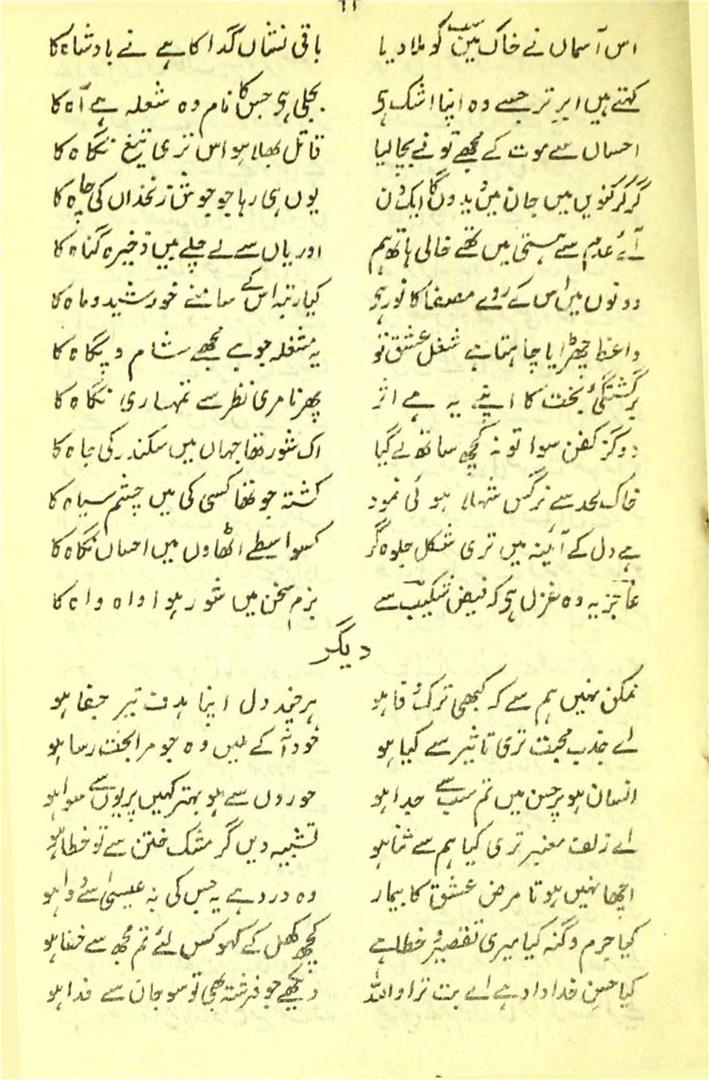 ۱۱
اس آسماں نے خاک میں سب کو ملا دیا باقی نشاں گدا کا ہے نے بادشاہ کا
کہتے ہیں ابرِ تر جسے وہ اپنا اشک ہی بجلی ہی جس کا نام وہ شعلہ ہے آہ کا
احساں سے موت کے مجھے تو نے بچا لیا قاتل بھلا ہو اس تری تیغِ نگاہ کا
گر کر کنویں میں جان میں دیدوں گا ایک دن یوں ہی رہا جو جوش زنخداں کی چاہ کا
آئے عدم سے ہستی میں تھے خالی ہاتھ ہم اور یاں سے لے چلے ہیں ذخیرہ گناہ کا
دونوں میں اس کے روے مصفا کا نور ہی کیا رتبہ اس کے سامنے خورشید و ماہ کا
واعظ چھڑایا چاہتا ہے شغل عشق تو یہ مشغلہ جو ہے مجھے شام و پگاہ کا
برگشتگیٔ بخت کا اپنے یہ ہے اثر پھرنا مری نظر سے تمہاری نگاہ کا
دو گز کفن سوا تو نہ کچھ ساتھ لے گیا اک شور تھا جہاں میں سکندر کی جاہ کا
خاک لحد سے نرگس شہلا ہوئی نمود کشتہ جو تھا کسی کی میں چشم سیاہ کا
ہے دل کے آئینہ میں تری شکل جلوہ گر کسواسطے اٹھاوں میں احساں نگاہ کا
عاجز یہ وہ غزل ہی کہ فیض شکیب سے بزم سخن میں شور ہوا واہ واہ کا
دیگر
ممکن نہیں ہم سے کہ کبھی ترک وفا ہو ہرچند دل اپنا ہدف تیر جفا ہو
اے جذب محبت تری تاثیر سے کیا ہو خود آ کے ملیں وہ جو مرا بخت رسا ہو
انسان ہو پر حسن میں تم سب سے جدا ہو حوروں سے ہو بہتر کہیں پریوں سے سوا ہو
اے زلف معنبر تری کیا ہم سے ثنا ہو تشبیہ دیں گر مشک ختن سے تو خطا ہو
اچھا نہیں ہوتا مرض عشق کا بیمار وہ درد ہے یہ جس کی نہ عیسیٰ سے دوا ہو
کیا جرم و گنہ کیا میری تقصیر و خطا ہے کچھ کھل کے کہو کس لئے تم مجھ سے خفا ہو
کیا حسن خداداد ہے اے بت ترا واللہ دیکھے جو فرشتہ بھی تو سو جان سے فدا ہو